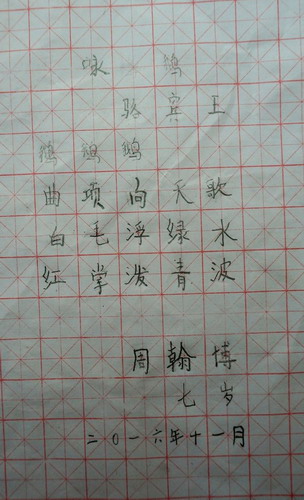 咏 鹅
骆宾王
鹅鹅鹅
曲项向天歌
白毛浮绿水
红掌泼青波
周翰博
七岁
二〇一六年十一月